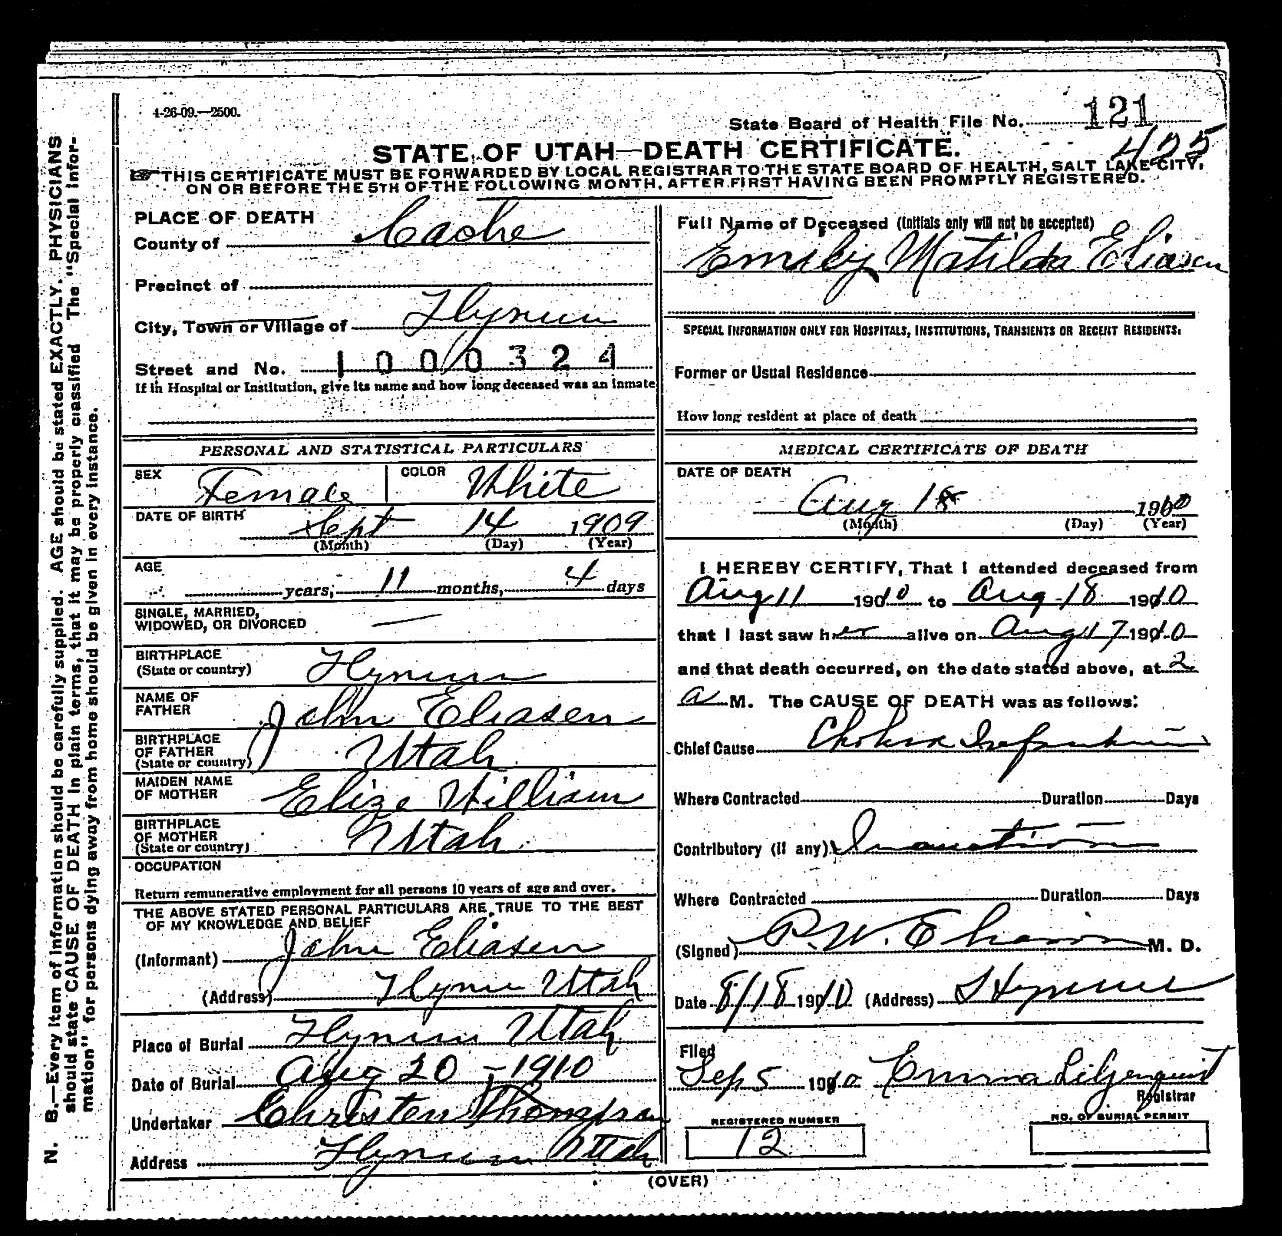 4-26-09.—2500.
State Board of Health File No. 121
425
STATE OF UTAH—DEATH CERTIFICATE.
☞THIS CERTIFICATE MUST BE FORWARDED BY LOCAL REGISTRAR TO THE STATE BOARD OF HEALTH, SALT LAKE CITY,
ON OR BEFORE THE 5TH OF THE FOLLOWING MONTH, AFTER FIRST HAVING BEEN PROMPTLY REGISTERED.
N. B.—Every item of information should be carefully supplied. AGE should be stated EXACTLY. PHYSICIANS
should state CAUSE OF DEATH in plain terms, that it may be properly classified The "Special Infor-
mation" for persons dying away from home should be given in every instance.
PLACE OF DEATH
County of Cache
Precinct of
City, Town or Village of Hyrum
Street and No. 1000324
If in Hospital or Institution, give its name and how long deceased was an inmate
PERSONAL AND STATISTICAL PARTICULARS
SEX Female COLOR White
DATE OF BIRTH Sept 14 1909
(Month) (Day) (Year)
AGE
years, 11 months, 4 days
SINGLE, MARRIED,
WIDOWED, OR DIVORCED —
BIRTHPLACE
(State or country) Hyrum
NAME OF
FATHER John Eliasen
BIRTHPLACE
OF FATHER
(State or country) Utah
MAIDEN NAME
OF MOTHER Eliza William
BIRTHPLACE
OF MOTHER
(State or country) Utah
OCCUPATION
Return remunerative employment for all persons 10 years of age and over.
THE ABOVE STATED PERSONAL PARTICULARS ARE TRUE TO THE BEST
OF MY KNOWLEDGE AND BELIEF
(Informant) John Eliasen
(Address) Hyrum Utah
Place of Burial Hyrum Utah
Date of Burial Aug 20 - 1910
Undertaker Christen Thompson
Address Hyrum Utah
Full Name of Deceased (Initials only will not be accepted)
Emily Matilda Eliasen
SPECIAL INFORMATION ONLY FOR HOSPITALS, INSTITUTIONS, TRANSIENTS OR RECENT RESIDENTS.
Former or Usual Residence
How long resident at place of death
MEDICAL CERTIFICATE OF DEATH
DATE OF DEATH
Aug 18 1910
(Month) (Day) (Year)
I HEREBY CERTIFY, That I attended deceased from
Aug 11 1910 to Aug-18 1910
that I last saw her alive on Aug 17 1910
and that death occurred, on the date stated above, at 2
a M. The CAUSE OF DEATH was as follows:
Chief Cause Cholera Infantum
Where Contracted Duration Days
Contributory (if any) Inanition
Where Contracted Duration Days
(Signed) P.W. M. D.
Date 8/18 1910 (Address) Hyrum
Filed
Sep 5 1910 Emma Liljenquist
Registrar
REGISTERED NUMBER
12
NO. OF BURIAL PERMIT
(OVER)